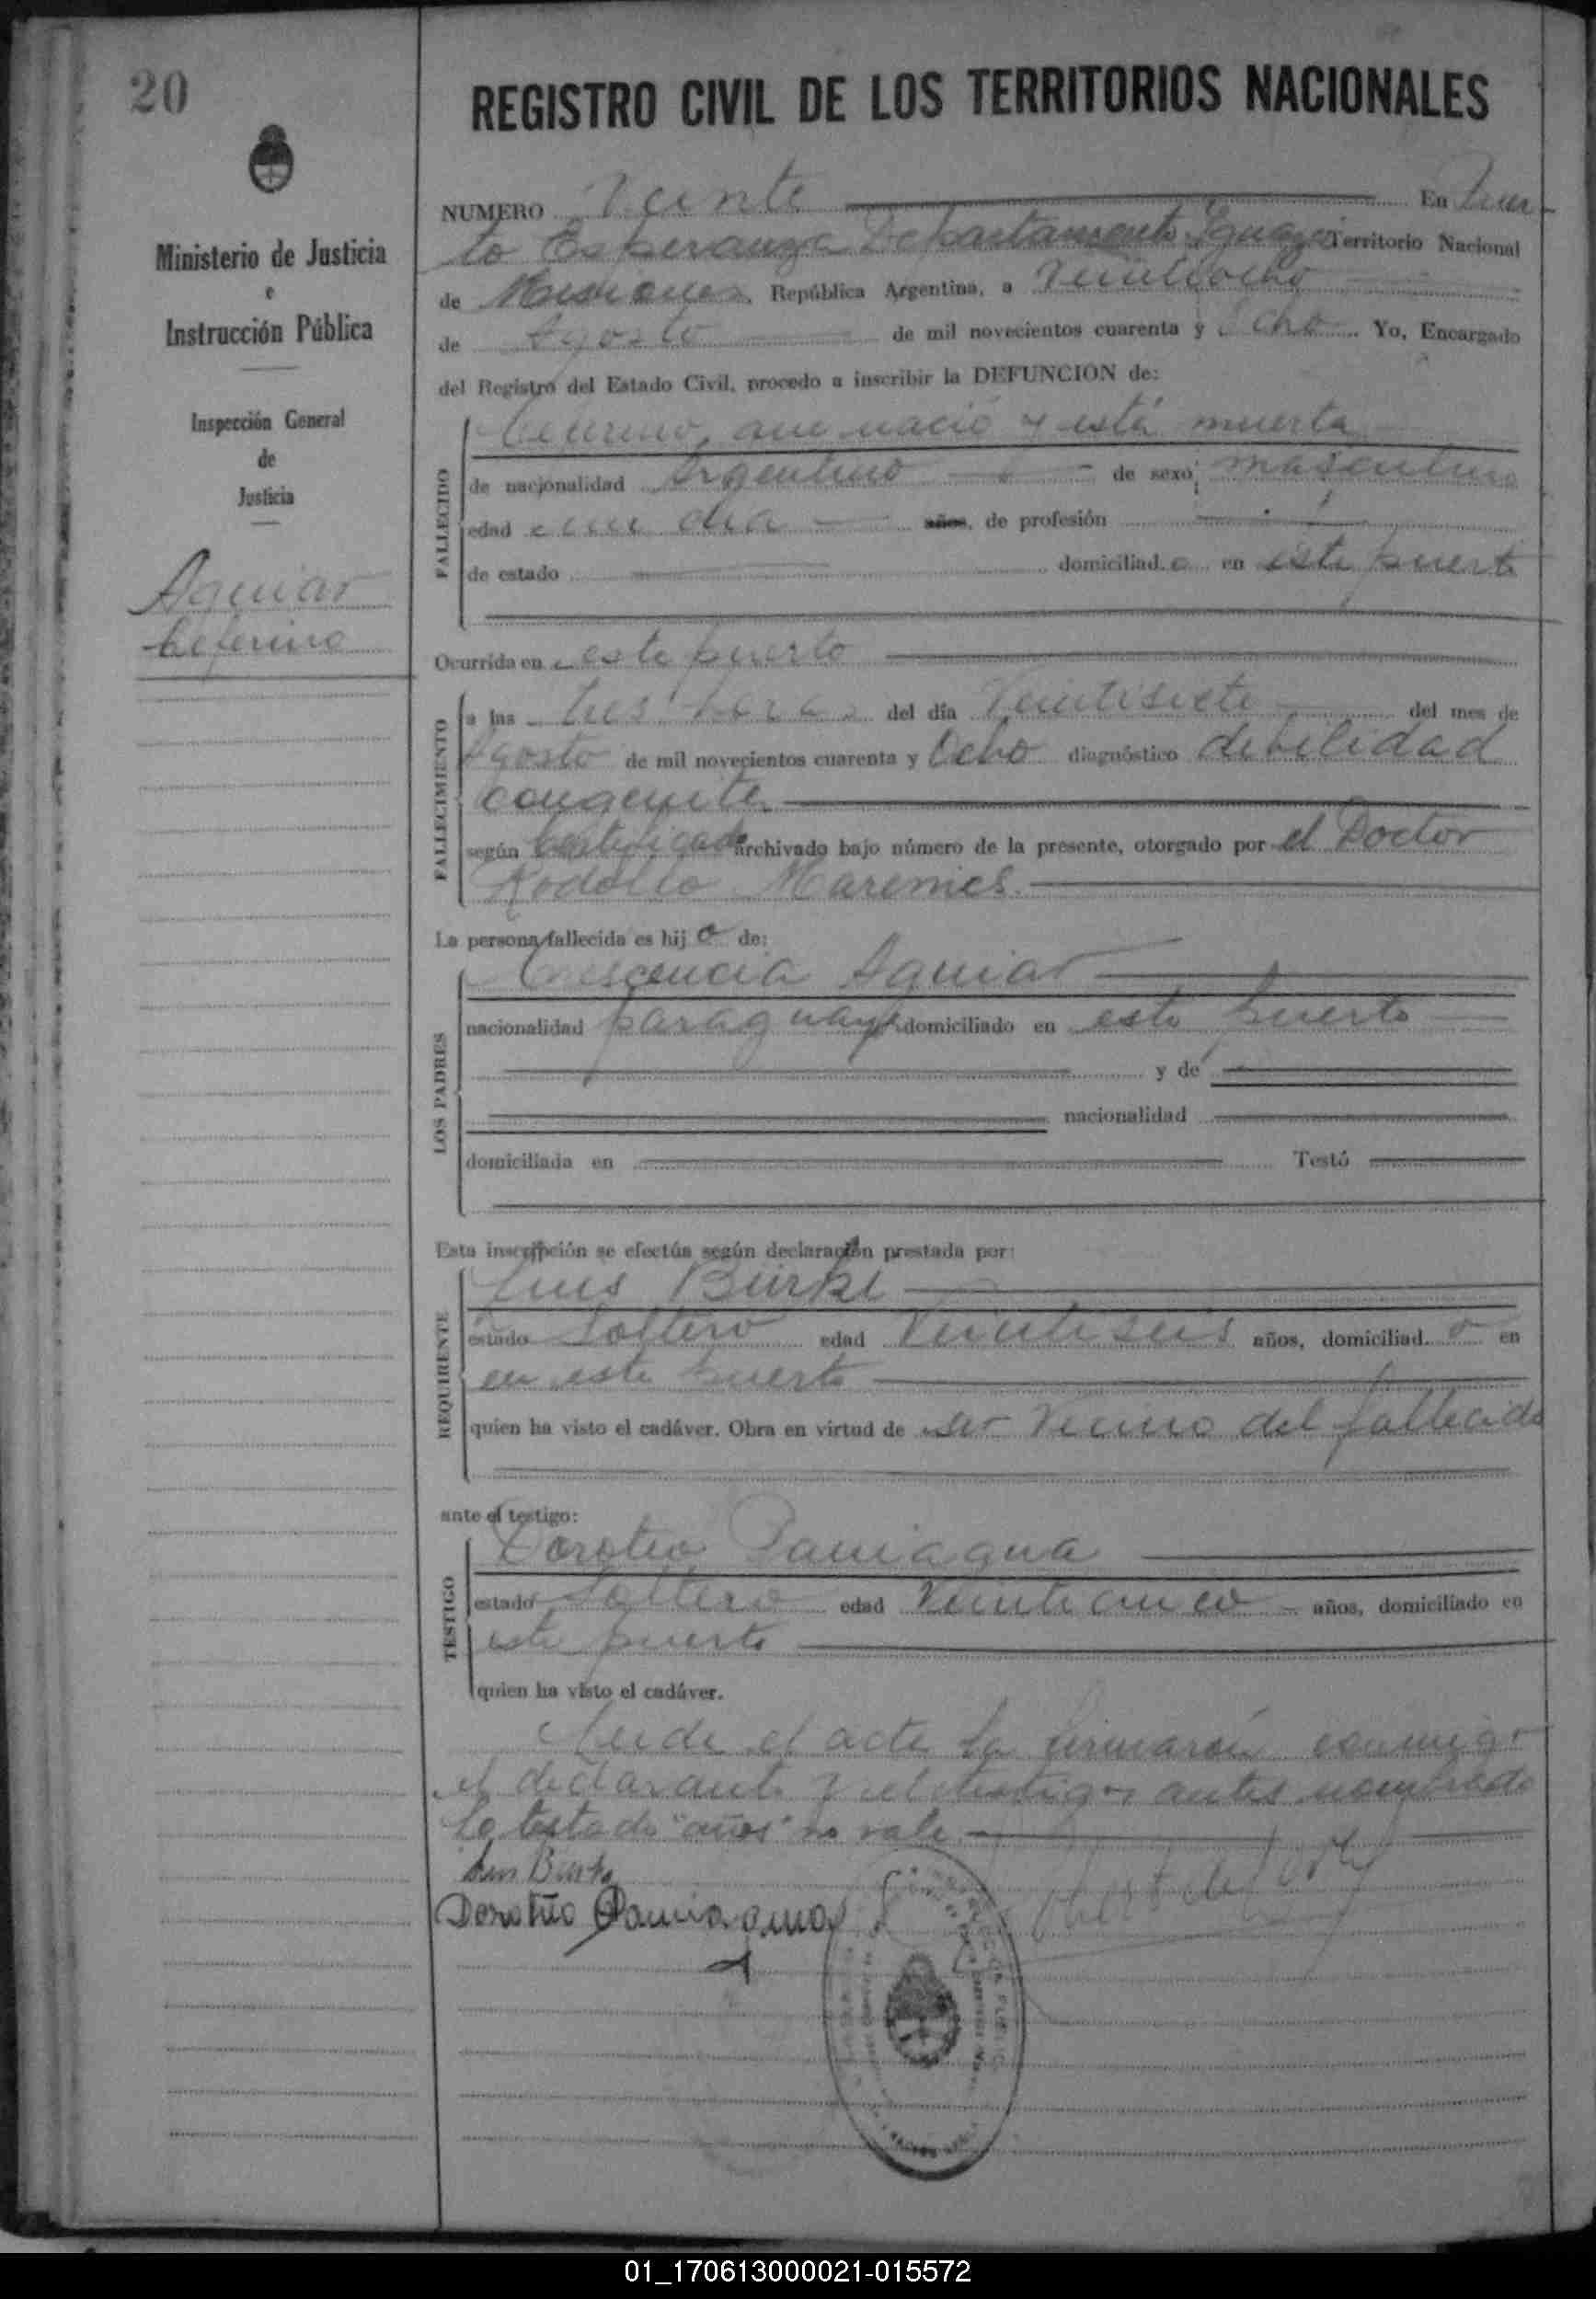 20
REGISTRO CIVIL DE LOS TERRITORIOS NACIONALES
Ministerio de Justicia
e
Instrucción Pública
Inspección General
de
Justicia
Aguiar
Ceferino
NUMERO Veinte En Puer-
to Esperanza Departamento Iguazú Territorio Nacional
de Misiones, República Argentina, a Veintiocho
de Agosto de mil novecientos cuarenta y Ocho Yo, Encargado
del Registro del Estado Civil, procedo a inscribir la DEFUNCION de:
FALLECIDO
Ceferino, que nació y está muerta
de nacionalidad Argentino de sexo masculino
edad un dia años, de profesión
de estado domiciliad o en este puerto
Ocurrida en este puerto
FALLECIMIENTO
a las tres horas del día Veintisiete del mes de
Agosto de mil novecientos cuarenta y Ocho diagnóstico debilidad
congenita
según Certificado archivado bajo número de la presente, otorgado por el Doctor
Rodolfo
La persona fallecida es hij o de:
LOS PADRES
Crescencia Aguiar
nacionalidad paraguaya domiciliado en este puerto
y de
nacionalidad
domiciliada en Testó
Esta inscripción se efectúa según declaración prestada por:
REQUIRENTE
Luis Burki
estado Soltero edad Veintiseis años, domiciliad o en
en este puerto
quien ha visto el cadáver. Obra en virtud de ser Vecino del fallecido
ante el testigo:
TESTIGO
Doroteo Paniagua
estado Soltero edad Veinticinco años, domiciliado en
este puerto
quien ha visto el cadáver.
el acta la firmaron conmigo
el declarante y el testigo antes nombrado
Lo testado "años" no vale
Luis Burki
Doroteo Paniagua
01_170613000021-015572